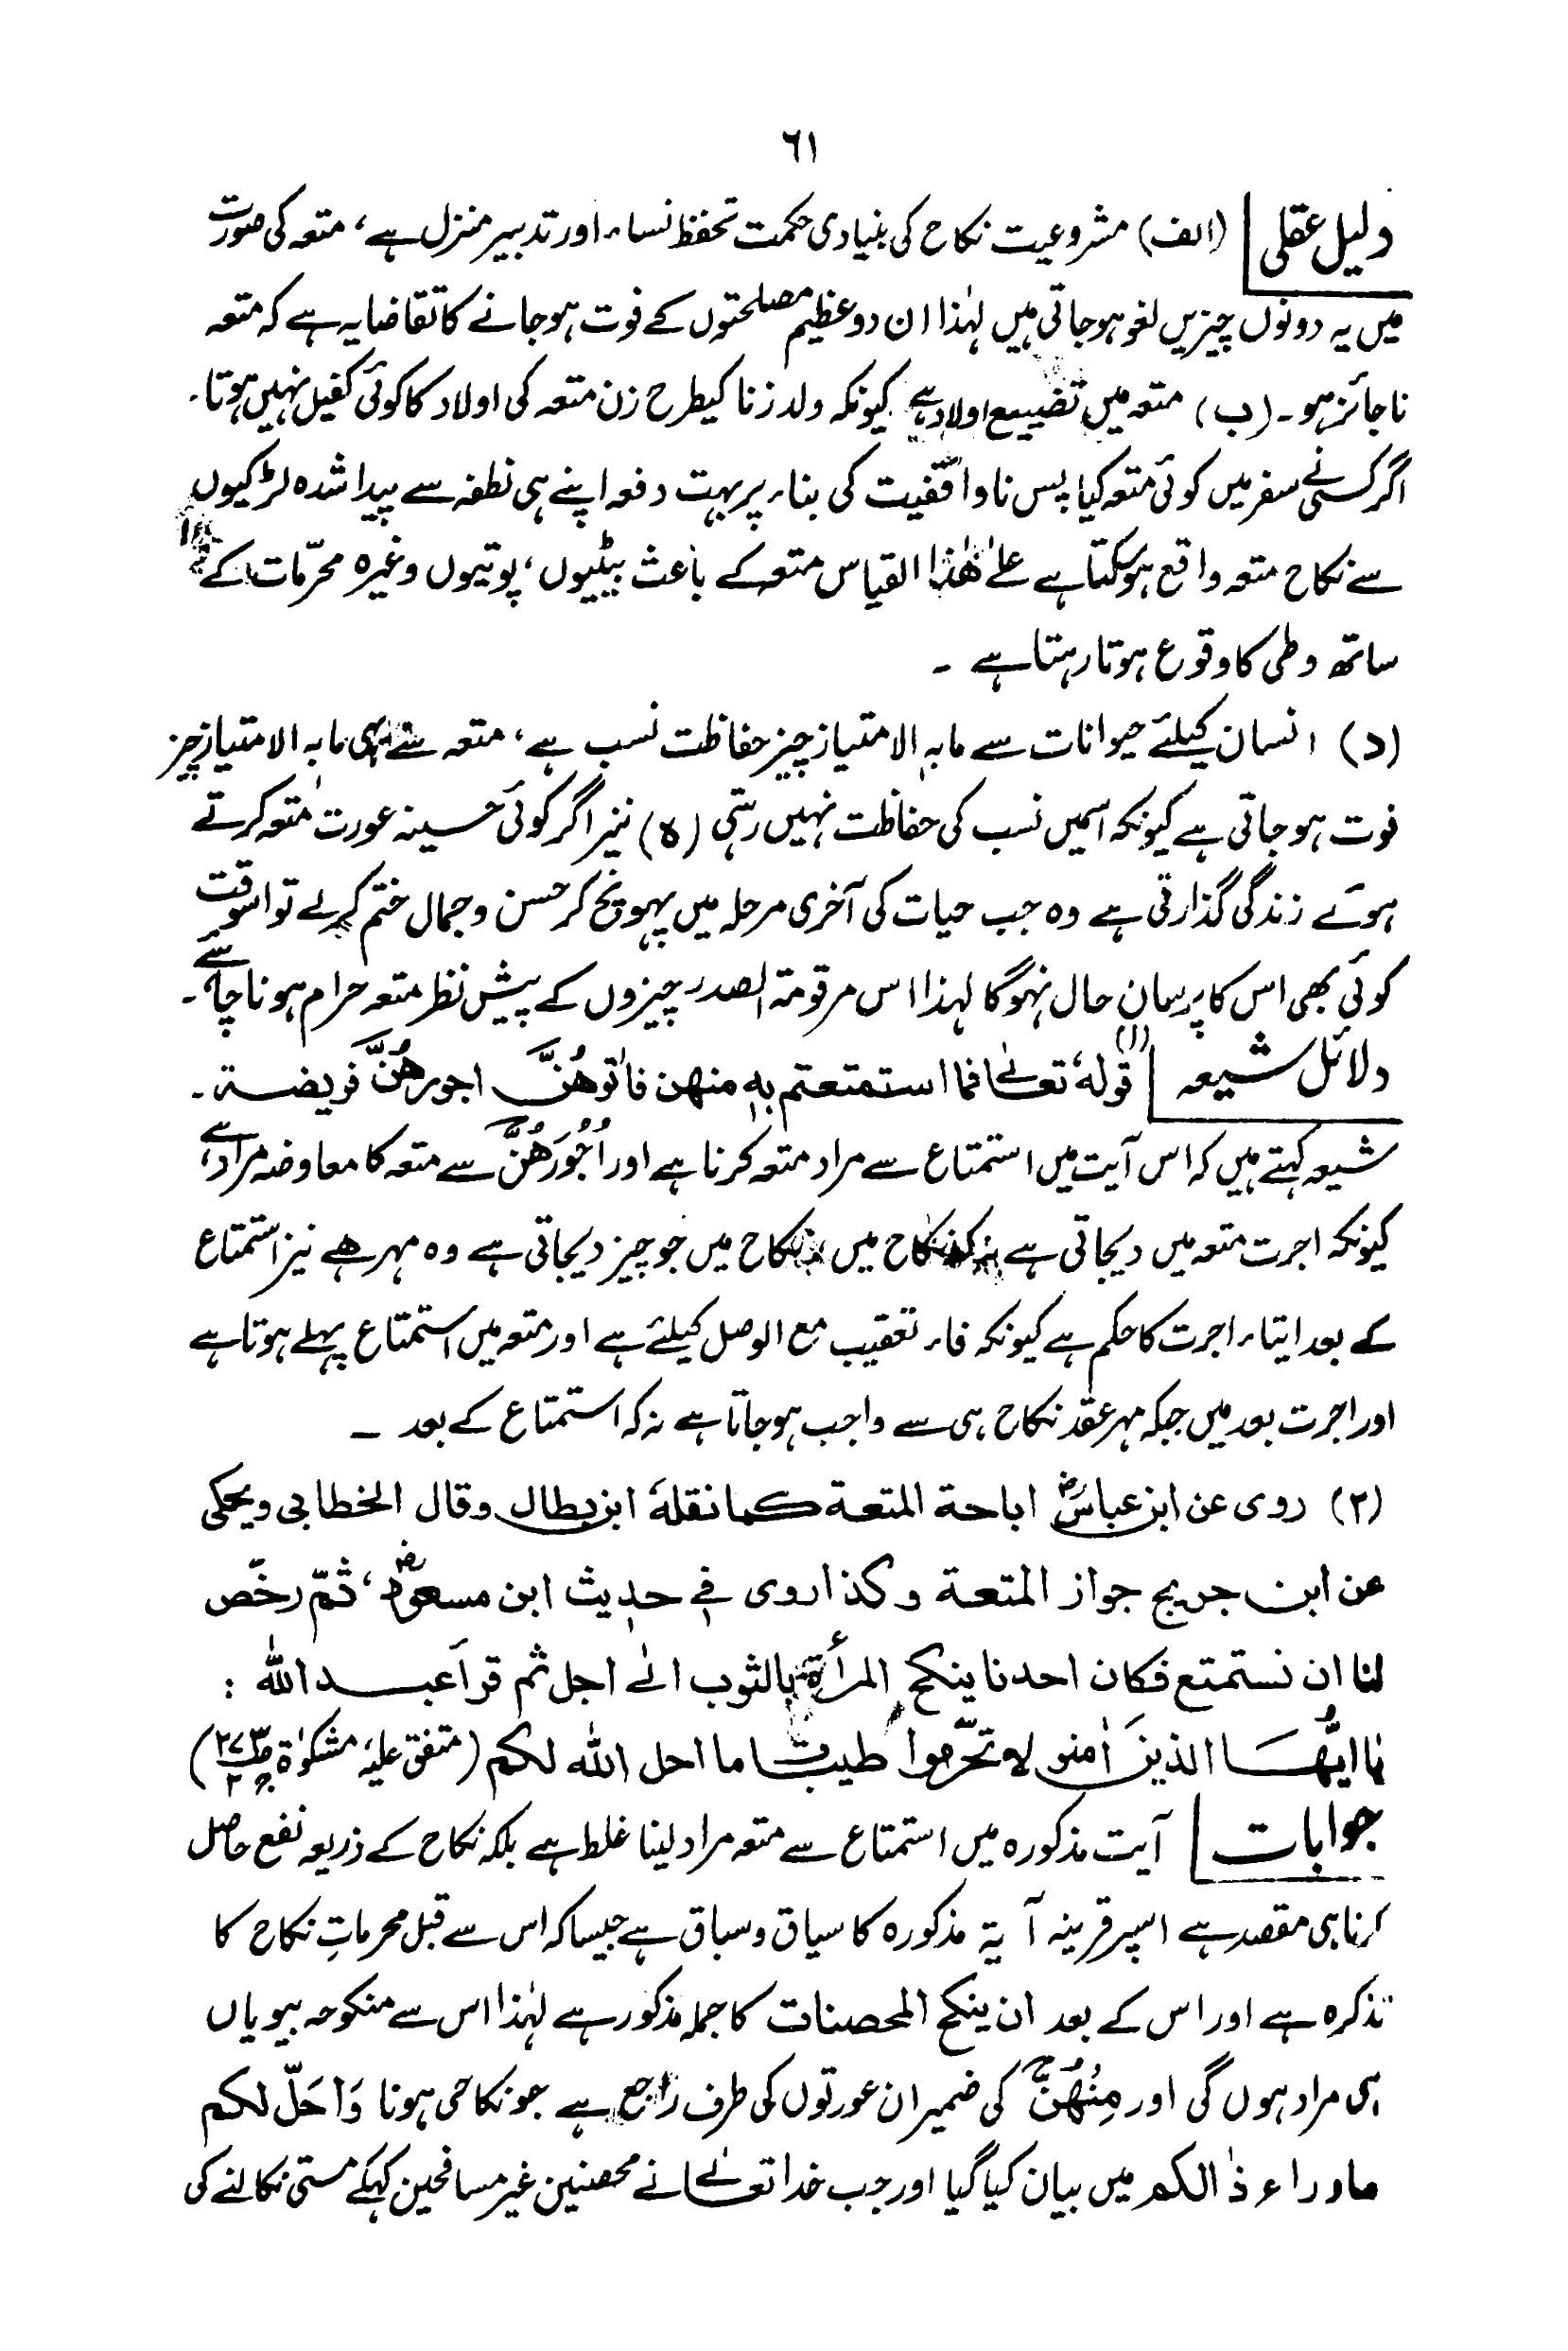 ٦١
دلیل عقلی (الف) مشروعیت نکاح کی بنیادی حکمت تحفظ نساء اور تدبیر منزل ہے، متعہ کی صورت
میں یہ دونوں چیزیں لغو ہوجاتی ہیں لہٰذا ان دو عظیم مصلحتوں کے فوت ہوجانے کا تقاضا یہ ہے کہ متعہ
ناجائز ہو۔ (ب) متعہ میں تضییع اولاد ہے کیونکہ ولد زنا کیطرح زن متعہ کی اولاد کا کوئی کفیل نہیں ہوتا۔
اگر کسی نے سفر میں کوئی متعہ کیا پس ناواقفیت کی بناء پر بہت دفعہ اپنے ہی نطفہ سے پیدا شدہ لڑکیوں
سے نکاح متعہ واقع ہوسکتا ہے علےٰ ھٰذا القیاس متعہ کے باعث بیٹیوں، پوتیوں وغیرہ محرّمات کے
ساتھ وطی کا وقوع ہوتا رہتا ہے ۔
(د) انسان کیلئے حیوانات سے مابہ الامتیاز چیز حفاظت نسب ہے، متعہ سے یہی مابہ الامتیاز چیز
فوت ہوجاتی ہے کیونکہ اسمیں نسب کی حفاظت نہیں رہتی (ہ) نیز اگر کوئی حسینہ عورت متعہ کرتے
ہوئے زندگی گذارتی ہے وہ جب حیات کی آخری مرحلہ میں پہونچ کر حسن وجمال ختم کرلے تو اسوقت
کوئی بھی اس کا پرسان حال نہوگا لہذا اس مرقومۃ الصدر چیزوں کے پیش نظر متعہ حرام ہونا چاہئے۔
دلائل شیعہ (۱) قولہٗ تعالےٰ فما استمتعتم بہٖ منھن فاٰتوھُنَّ اجورھُنَّ فریضۃ۔
شیعہ کہتے ہیں کہ اس آیت میں استمتاع سے مراد متعہ کرنا ہے اور اُجُورَھُنَّ سے متعہ کا معاوضہ مراد ہے،
کیونکہ اجرت متعہ میں دیجاتی ہے نہ کہ نکاح میں، نکاح میں جو چیز دیجاتی ہے وہ مہر ہے نیز استمتاع
کے بعد ایتاء اجرت کا حکم ہے کیونکہ فاء تعقیب مع الوصل کیلئے ہے اور متعہ میں استمتاع پہلے ہوتا ہے
اور اجرت بعد میں جبکہ مہر عقد نکاح ہی سے واجب ہوجاتا ہے نہ کہ استمتاع کے بعد ۔
(۲) روی عن ابن عباسؓ اباحۃ المتعۃ کما نقلہٗ ابن بطال وقال الخطابی ویحکی
عن ابن جریج جواز المتعۃ وکذا روی فی حدیث ابن مسعودؓ، ثمّ رخّص
لنا ان نستمتع فکان احدنا ینکح المرأۃ بالثوب الیٰ اجل ثم قرأ عبد اللہ :
یٰا ایُّھَا الذینَ اٰمنو لا تحّرموا طیبٰت ما احل اللہ لکم (متفق علیہ، مشکوٰۃ ص۲۷۳ ج۲)
جوابات آیت مذکورہ میں استمتاع سے متعہ مراد لینا غلط ہے بلکہ نکاح کے ذریعہ نفع حاصل
کرنا ہی مقصد ہے اسپر قرینہ آیۃ مذکورہ کا سیاق وسباق ہے جیسا کہ اس سے قبل محرماتِ نکاح کا
تذکرہ ہے اور اس کے بعد ان ینکح المحصنات کا جملہ مذکور ہے لہٰذا اس سے منکوحہ بیویاں
ہی مراد ہوں گی اور مِنْھُنَّ کی ضمیر ان عورتوں کی طرف راجع ہے جو نکاحی ہونا وَاَحَلّ لکم
ماوراء ذٰالکم میں بیان کیا گیا اور جب خدا تعالےٰ نے محصنین غیر مسافحین کہکے مستی نکالنے کی